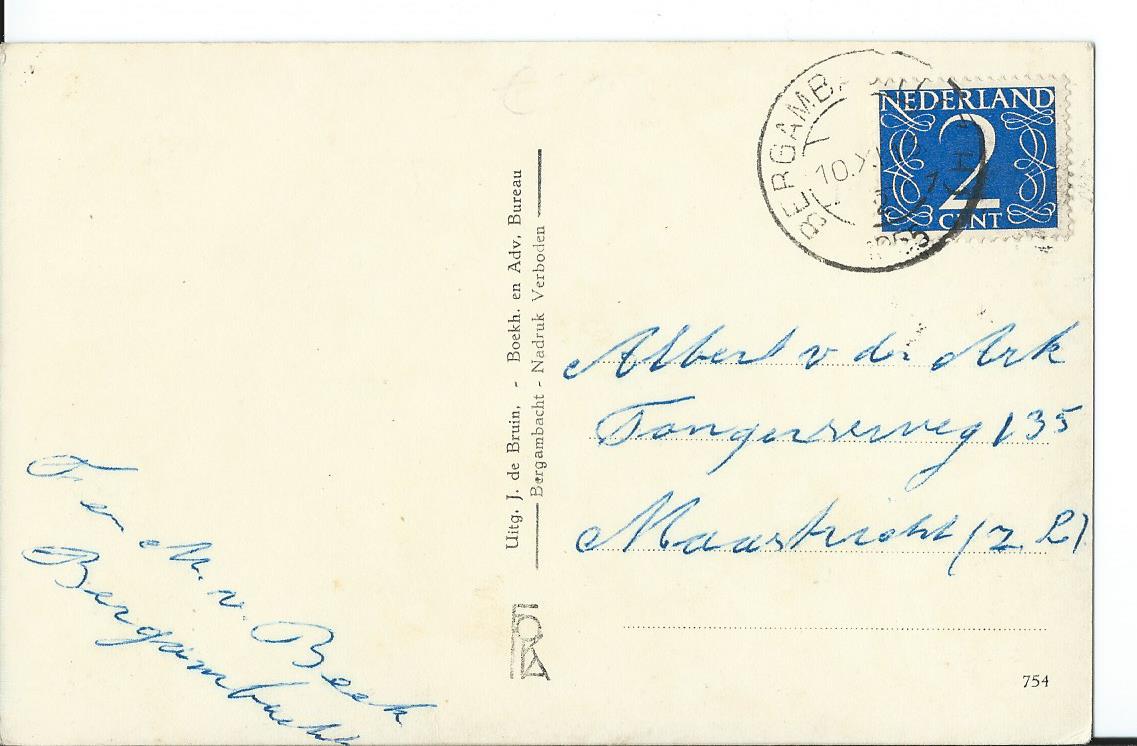 BERGAMBA
10.X
1955
NEDERLAND
2
CENT
Uitg. J. de Bruin, - Boekh. en Adv, Bureau
Bergambacht - Nadruk Verboden
FOKA
Albert v der Ark
Tongerserweg 135
Maastricht (Z. L)
F en M. v. Beek
Bergambacht
754